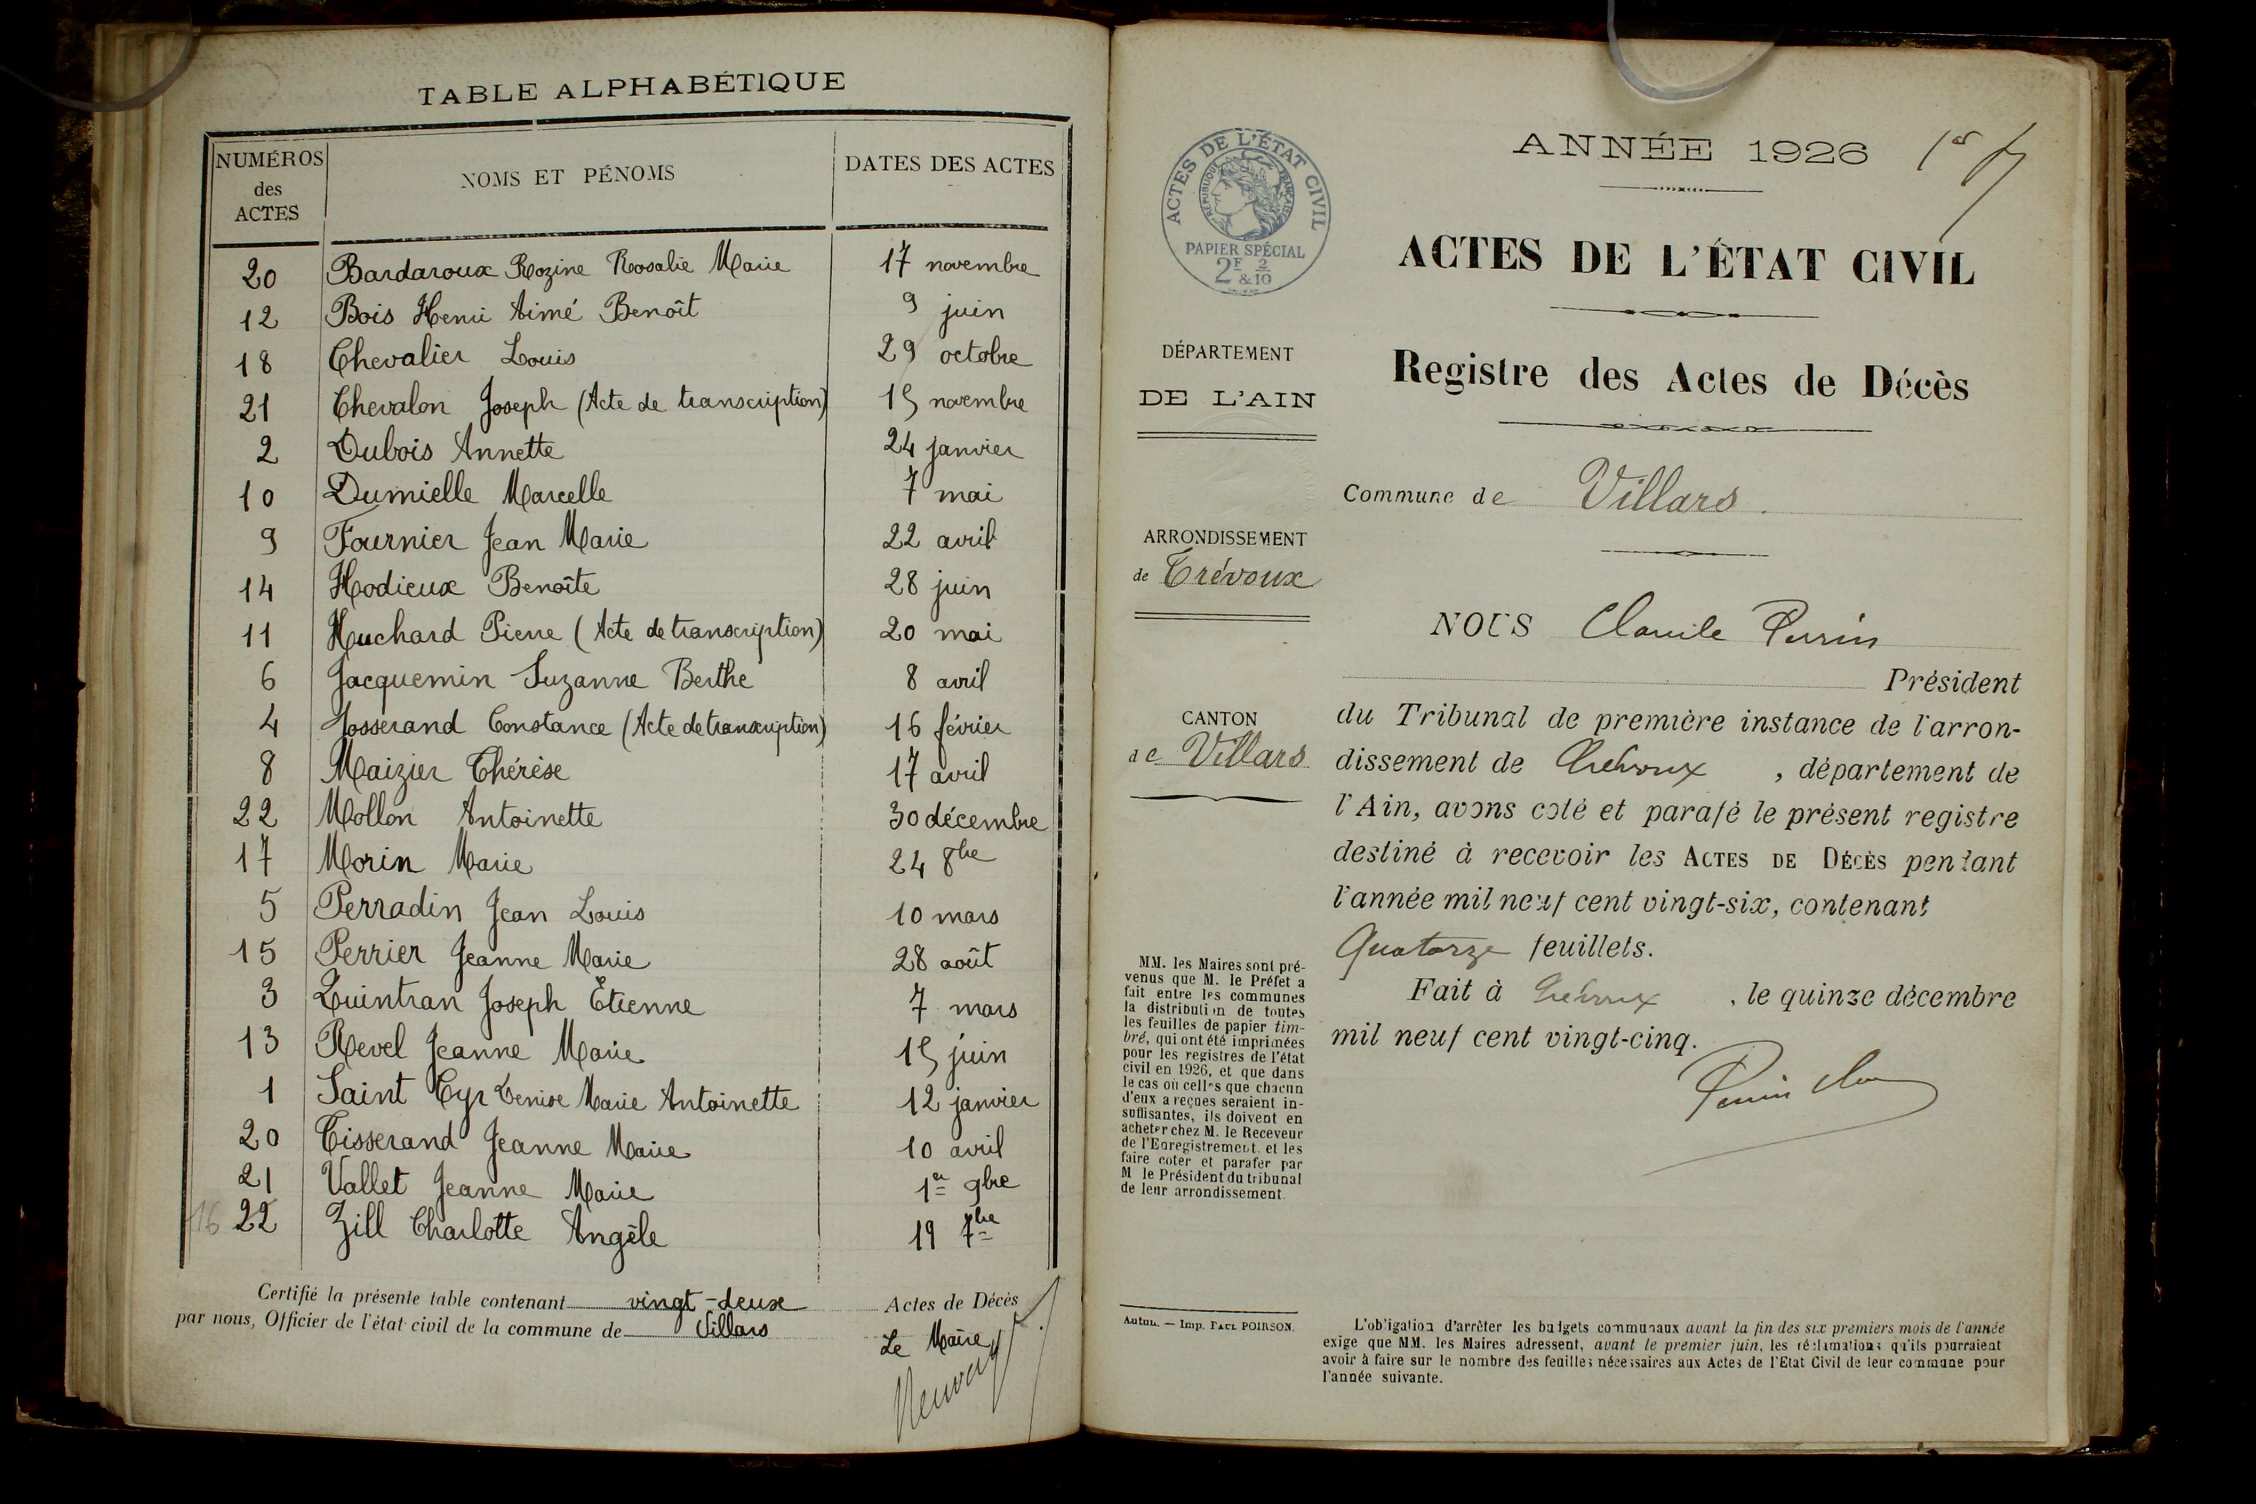 TABLE ALPHABÉTIQUE
NUMÉROS des ACTES | NOMS ET PÉNOMS | DATES DES ACTES
20 Bardaroux Rozine Rosalie Marie 17 novembre
12 Bois Henri Aimé Benoît 9 juin
18 Chevalier Louis 29 octobre
21 Chevalon Joseph (Acte de transcription) 15 novembre
2 Dubois Annette 24 janvier
10 Dumielle Marcelle 7 mai
9 Fournier Jean Marie 22 avril
14 Hodieux Benoîte 28 juin
11 Huchard Pierre (Acte de transcription) 20 mai
6 Jacquemin Suzanne Berthe 8 avril
4 Josserand Constance (Acte de transcription) 16 février
8 Maizier Thérèse 17 avril
22 Mollon Antoinette 30 décembre
17 Morin Marie 24 8bre
5 Perradin Jean Louis 10 mars
15 Perrier Jeanne Marie 28 août
3 Quintran Joseph Étienne 7 mars
13 Revel Jeanne Marie 15 juin
1 Saint Cyr Denise Marie Antoinette 12 janvier
20 Tisserand Jeanne Marie 10 avril
21 Vallet Jeanne Marie 1er 9bre
16 22 Zill Charlotte Angèle 19 7bre
Certifié la présente table contenant vingt-deux Actes de Décès
par nous, Officier de l'état civil de la commune de Villars
Le Maire
ANNÉE 1926
ACTES DE L'ÉTAT CIVIL
RÉPUBLIQUE FRANÇAISE
PAPIER SPÉCIAL
2F & 2/10
ACTES DE L'ÉTAT CIVIL
Registre des Actes de Décès
DÉPARTEMENT
DE L'AIN
Commune de Villars.
ARRONDISSEMENT
de Trévoux
CANTON
de Villars
NOUS Claude Perrin
Président
du Tribunal de première instance de l'arron-
dissement de Trévoux, département de
l'Ain, avons coté et parafé le présent registre
destiné à recevoir les ACTES DE DÉCÈS pendant
l'année mil neuf cent vingt-six, contenant
Quatorze feuillets.
Fait à Trévoux, le quinze décembre
mil neuf cent vingt-cinq.
Perrin
MM. les Maires sont pré-
venus que M. le Préfet a
fait entre les communes
la distribution de toutes
les feuilles de papier tim-
bré, qui ont été imprimées
pour les registres de l'état
civil en 1926, et que dans
le cas où celles que chacun
d'eux a reçues seraient in-
suffisantes, ils doivent en
acheter chez M. le Receveur
de l'Enregistrement et les
faire coter et parafer par
M le Président du tribunal
de leur arrondissement.
Autun. — Imp. PAUL POIRSON.
L'obligation d'arrêter les budgets communaux avant la fin des six premiers mois de l'année
exige que MM. les Maires adressent, avant le premier juin, les réclamations qu'ils pourraient
avoir à faire sur le nombre des feuilles nécessaires aux Actes de l'Etat Civil de leur commune pour
l'année suivante.